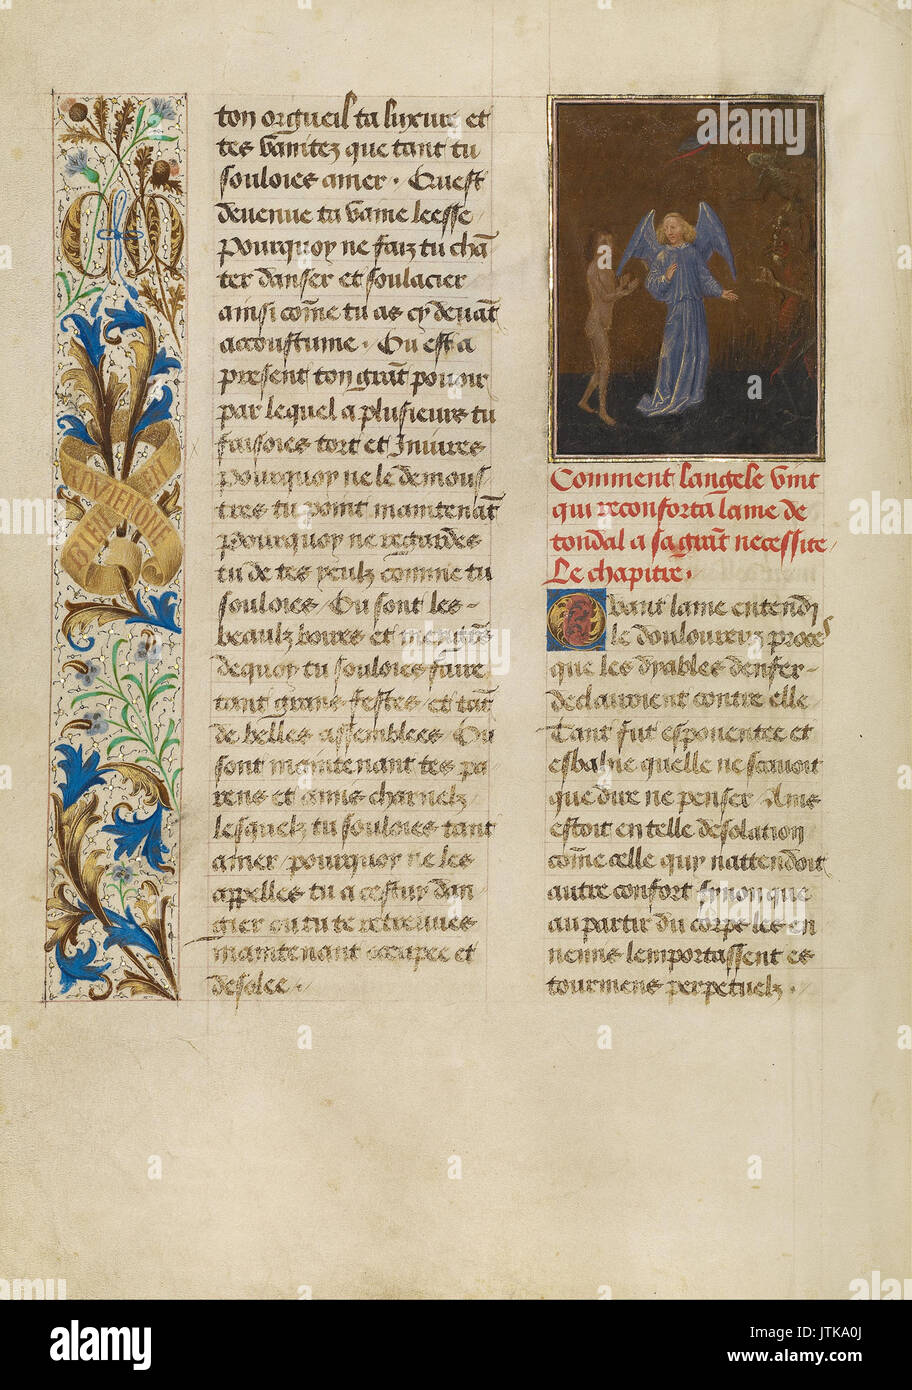 ton orgueil ta luxure et
tes vanitez que tant tu
souloies amer . Quest
deuenue ta vaine leesse /
Pourquoy ne faiz tu chã
ter danser et soulacier
ainsi cõme tu as cy deuãt
accoustume . Ou est a
present ton grãt pouoir
par lequel a plusieurs tu
faisoies tort et Iniures
pourquoy ne le demous /
tres tu point maintenãt
Pourquoy ne regardes
tu de tes yeulz comme tu
souloies / Ou sont les -
beaulz boires et mengiers
dequoy tu souloies faire
tant grans festes et tãt
de belles assemblees / Ou
sont maintenant tes pa
rens et amis charnelz /
lesquelz tu souloies tant
amer / pourquoy ne les
appelles tu a cestuy dan
gier ou tu te retreuues
maintenant occupee et
desolee . /
Comment langele vint
qui reconforta lame de
tondal a sa grãt necessite /
Le chapitre .
Quant lame entendi
le douloureux proces
que les dyables denfer -
declairoient contre elle
Tant fut espouentee et
esbahie quelle ne scauoit
que dire ne penser / Ains
estoit en telle desolation /
cõme celle quy nattendoit
autre confort synon que
au partir du corps les en
nemis lemportassent es
tourmens perpetuelz .
BIEN
ADVIENGNE
alamy
a
alamy stock photo
Image ID: JTKA0J
www.alamy.com